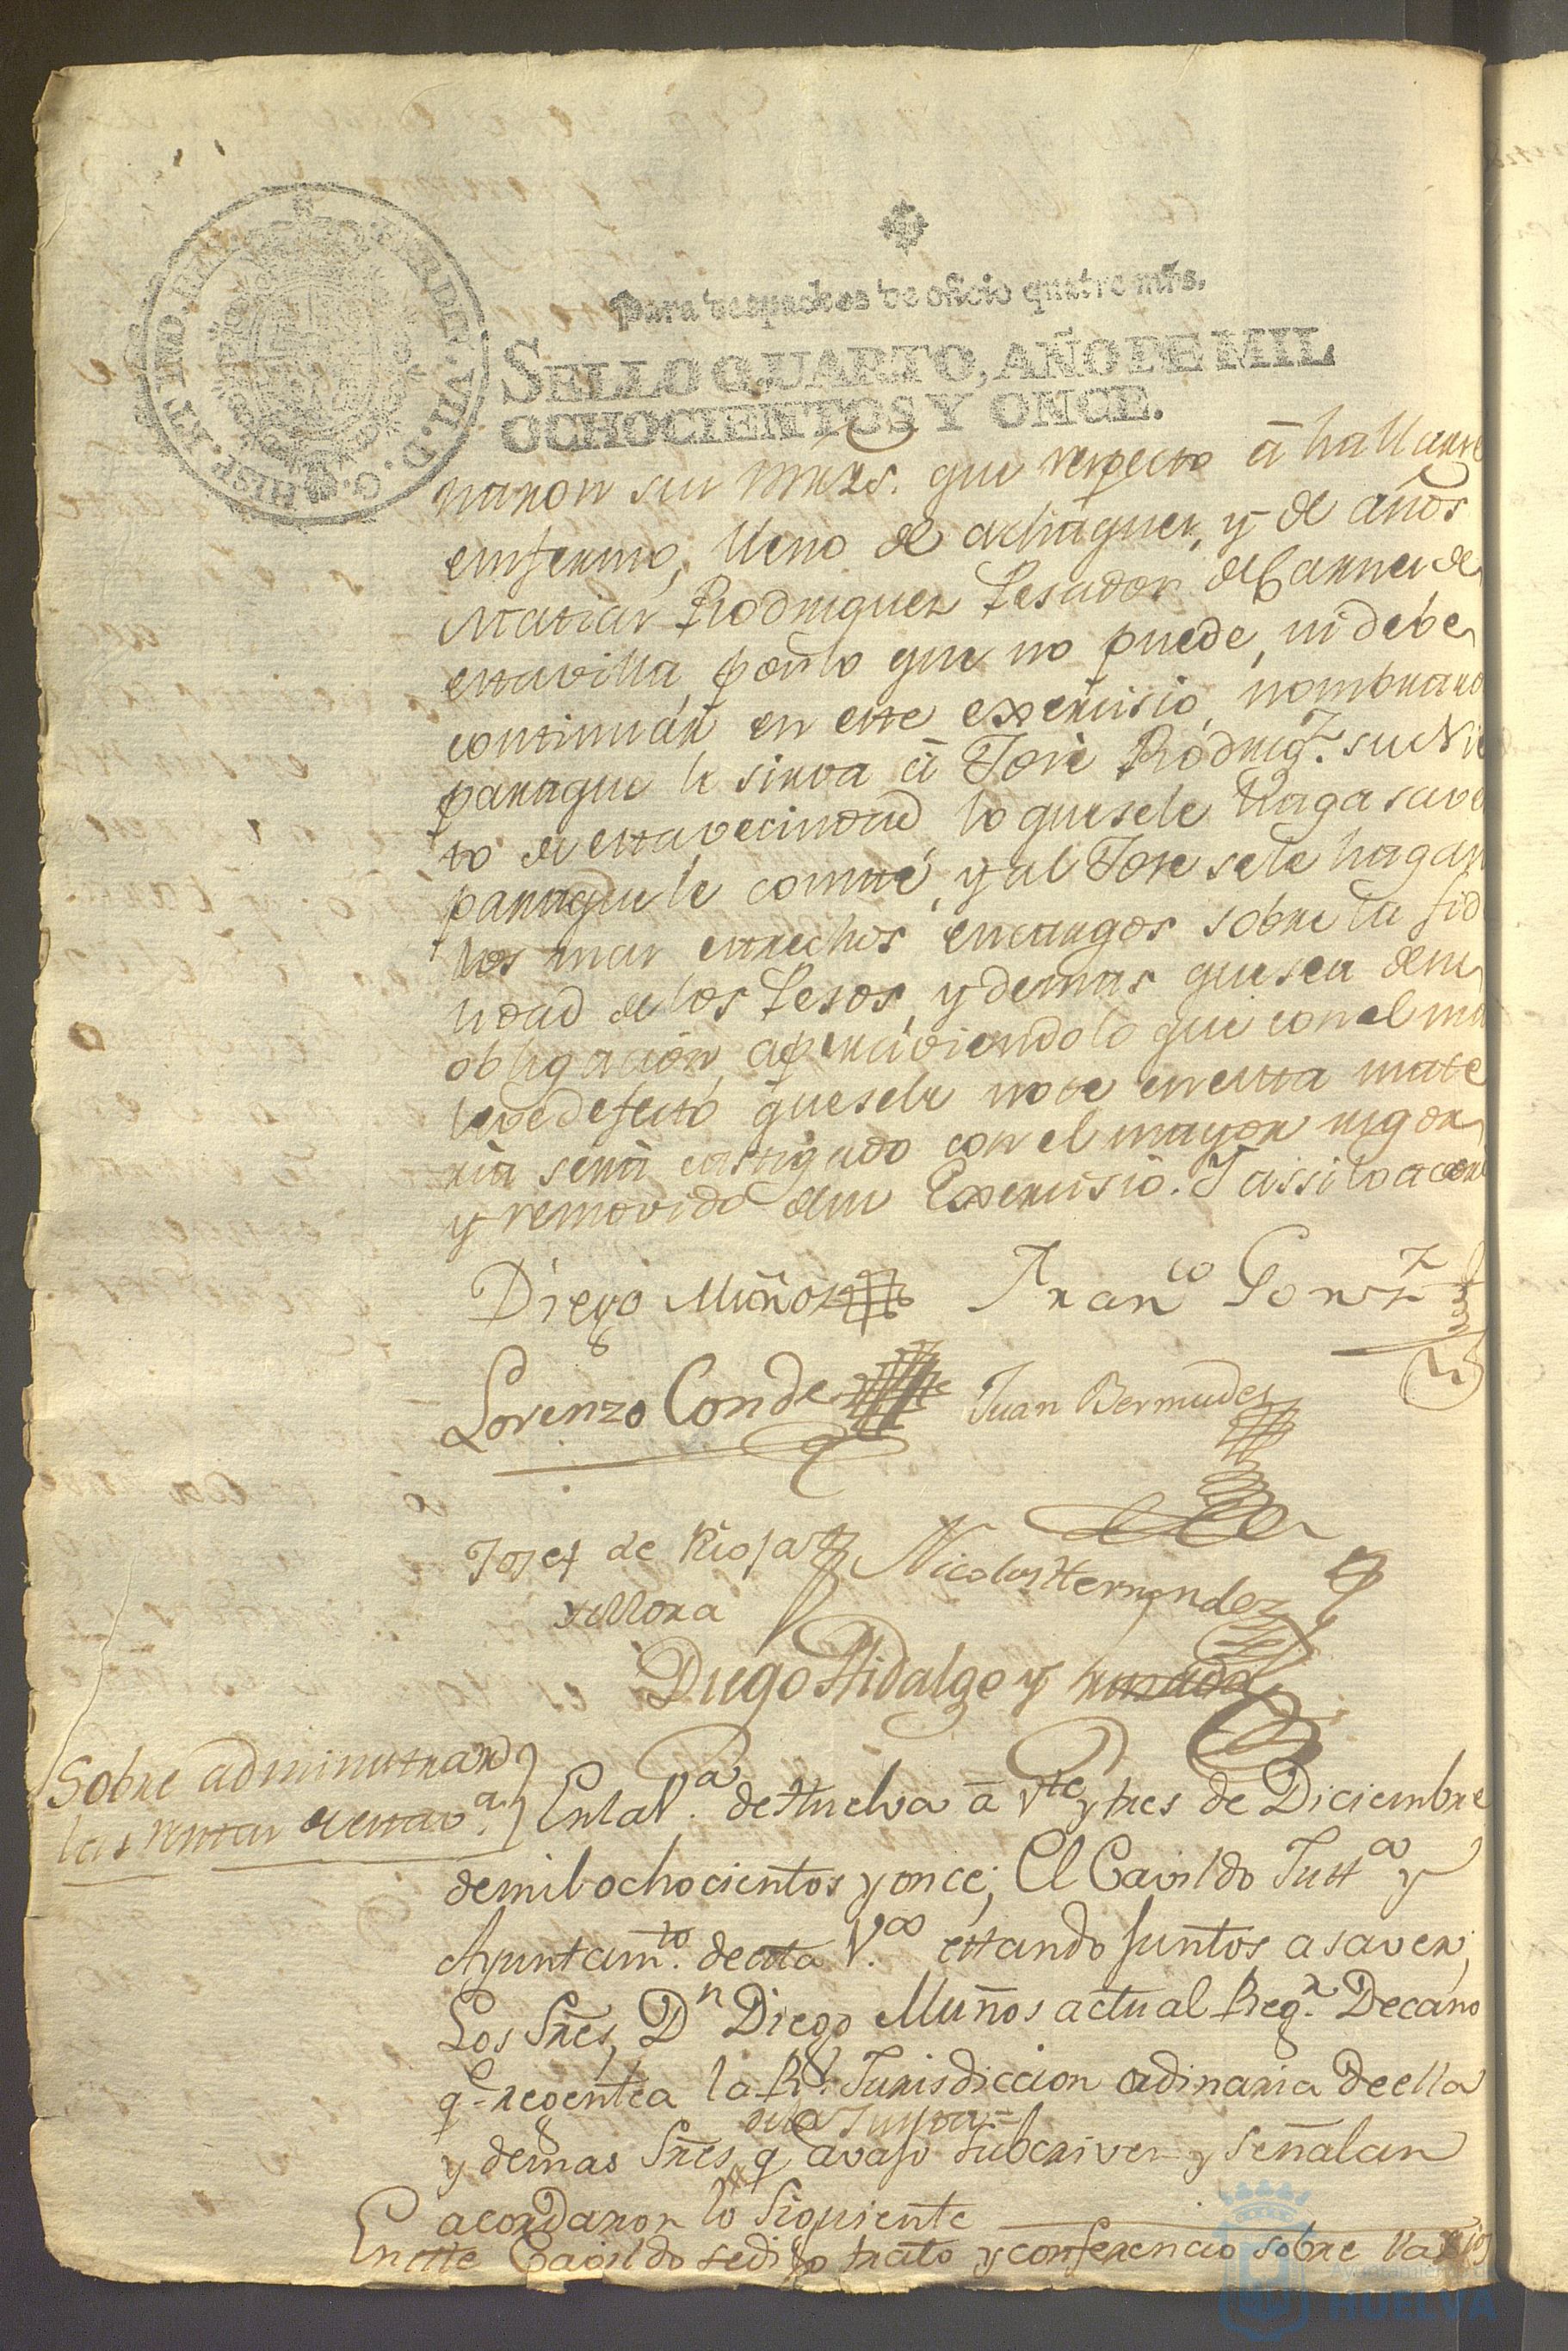 HISP. ET IND. REX FERDIN. VII. D. G.
Para despachos de oficio quatro mrs.
SELLO QUARTO, AÑO DE MIL
OCHOCIENTOS Y ONCE.
naron sus mrzs. que respecto á hallarse
emfermo, lleno de achaques, y de años
Matias Rodriguez Pesador de Carnes de
esta villa, por lo que no puede, ni debe
continuar en este exercisio, nombraro
para que le sirva á José Rodrig.z su Nie
to de esta vecindad lo que sele haga save
para que le conste, y al Jose sele hagan
los mas estrechos encargos sobre la fid
lidad de los Pesos, y demas que sea de su
obligacion, aperciviendolo que con el ma
leve defecto que sele note en esta mate
ria será castigado con el mayor rigor
y removido de su Exercisio. Y assi lo acor
Diego Muñoz Fran.co Gonz.z
Lorenzo Conde Juan Bermudez
Josef de Rioja
y Mora
Nicolas Hernandez
Diego Hidalgo y
Sobre administrar
las rentas de esta v.a
En la V.a de Huelva á v.te y tres de Diciembre
de mil ochocientos y once; El Cavildo Just.a y
Ayuntam.to de esta V.a estando juntos a saver,
Los Sres, D.n Diego Muños actual Reg.r Decano
q.e regentea la R.l Jurisdiccion ordinaria de ella
y demas Sres q avajo subscriven y señalan
acordaron lo siguiente
En este Cavildo se dijo trato y conferencio sobre varios
Ayuntamiento de
HUELVA